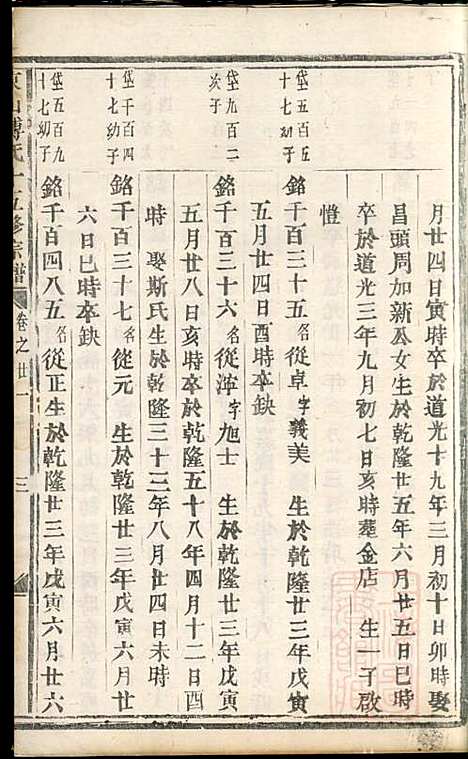 月廿四日寅時卒於道光十九年三月初十日卯時娶
昌頭周加新公女生於乾隆廿五年六月廿五日巳時
卒於道光三年九月初七日亥時葬金店　生一子啟
愷
岱五百五十七幼子
銘千百三十五名從卓字義美　生於乾隆廿三年戊寅
五月廿四日酉時卒缺
岱九百二次子
銘千百三十六名從渖字旭士　生於乾隆廿三年戊寅
五月廿八日亥時卒於乾隆五十八年四月十二日酉
時　娶斯氏生於乾隆三十三年八月廿四日未時
岱千百四十七幼子
銘千百三十七名從元　生於乾隆廿三年戊寅六月廿
六日巳時卒缺
岱五百九十七幼子
銘千百四八五名從正生於乾隆廿三年戊寅六月廿六
東山傅氏十五修宗譜　卷之廿一　三